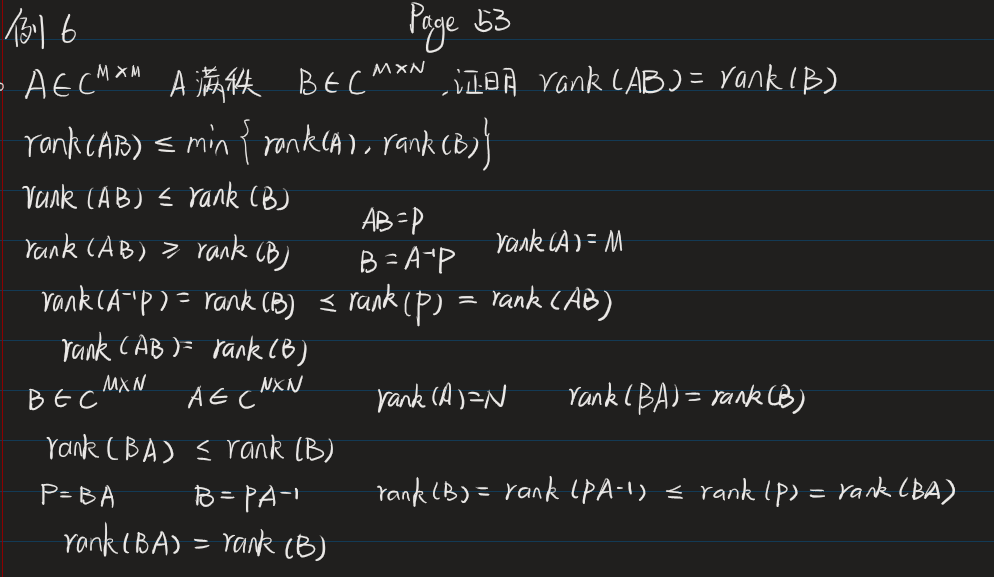 例6 Page 53
A∈C^{M×M} A满秩 B∈C^{M×N},证明 rank(AB)=rank(B)
rank(AB) ≤ min{rank(A), rank(B)}
rank(AB) ≤ rank(B)
rank(AB) ≥ rank(B) AB=P B=A⁻¹P rank(A)=M
rank(A⁻¹P) = rank(B) ≤ rank(P) = rank(AB)
rank(AB) = rank(B)
B∈C^{M×N} A∈C^{N×N} rank(A)=N rank(BA)=rank(B)
rank(BA) ≤ rank(B)
P=BA B=PA⁻¹ rank(B) = rank(PA⁻¹) ≤ rank(P) = rank(BA)
rank(BA) = rank(B)